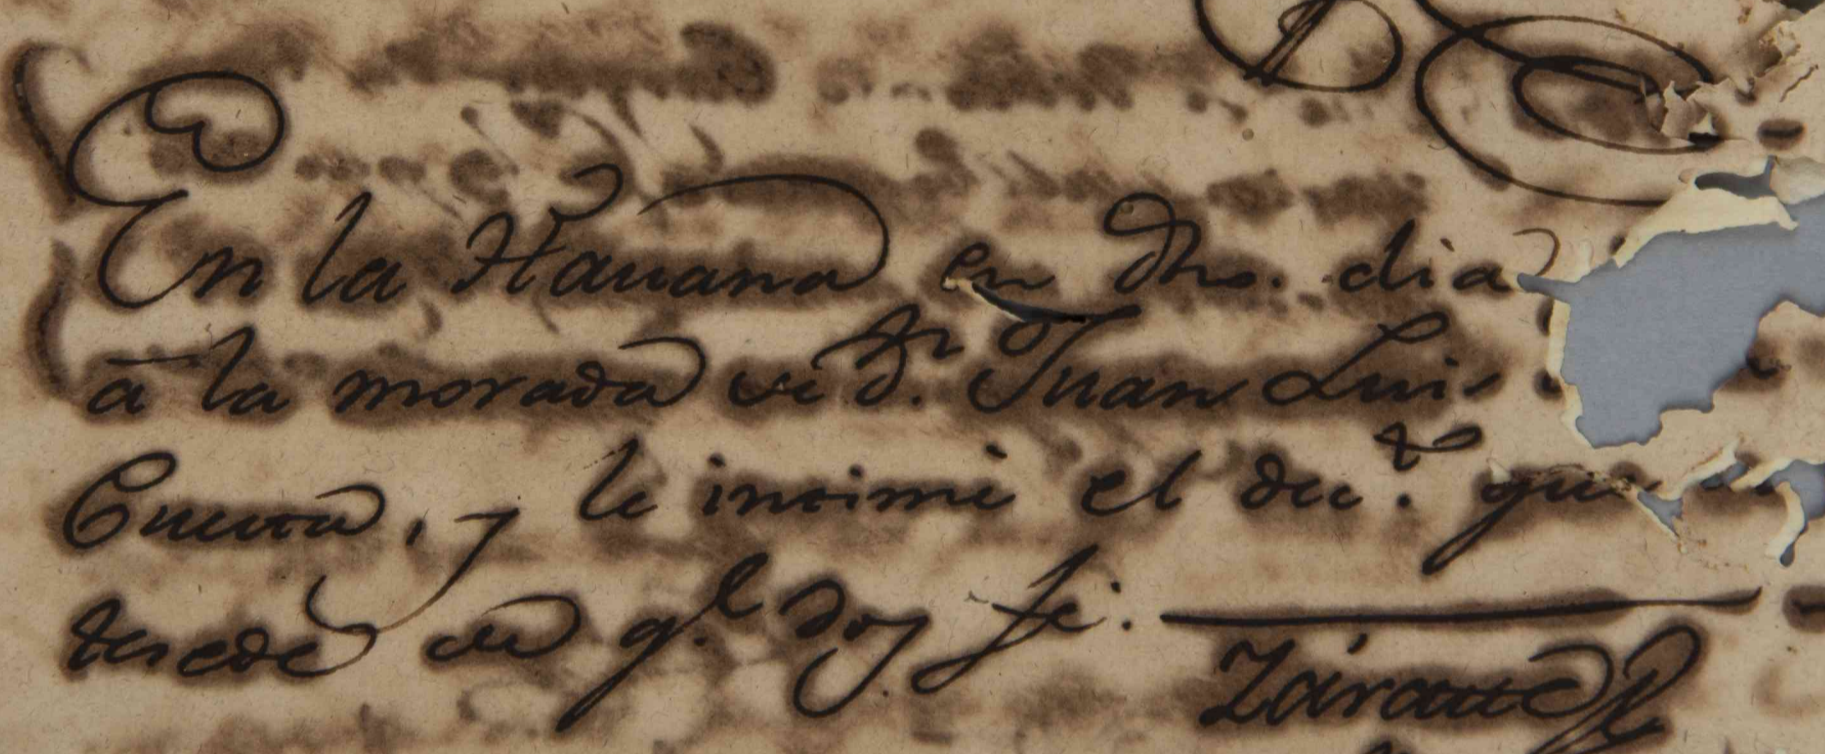 En la Havana en dho. dia
a la morada de Dn. Juan Luis
Cuesta, y le intimé el decto. que an
tesede de q.e doy fe.
Zárate